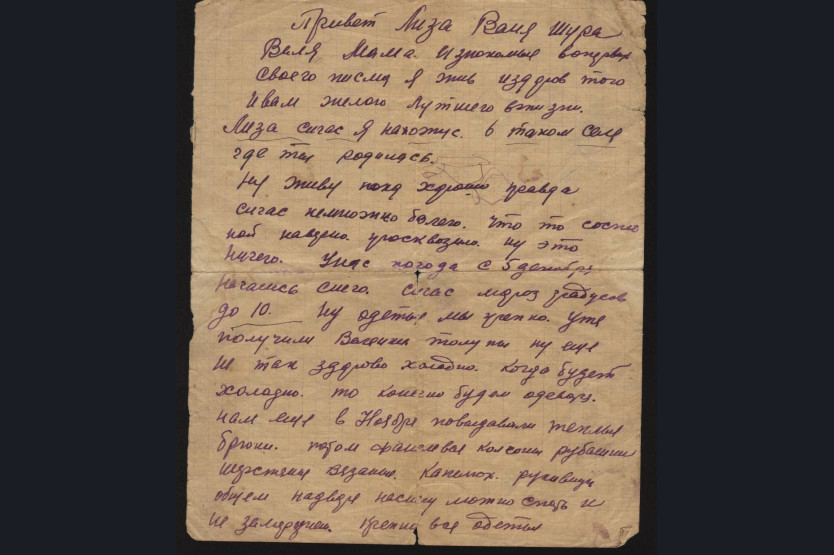 Привет Лиза Ваня Шура
Валя Мама. и знокомые вопервых
своего писма я жив издоров того
ивам жилаю лутшего вжизни.
Лиза сичас я нахожус. в таком селе
где ты родилась.
Ну живу пока хорошо правда
сичас немножко болею. что то соспи
ной наверно. просквозило. ну это
ничего. унас погода с 5 декабря
начались снега. сичас мороз градусов
до 10. ну одетые мы крепко. уже
получили Валенки толупы ну еще
не так здорово холодно. когда будет
холодно. то конечно будем одевать.
нам еще в Ноябре повыдавали теплые
брюки. потом фанелевые колсоны рубашки
шерстяные вязаные. капишох. рукавицы
общем надворе наснегу можно спать и
не замерзнеш. крепко все одетые